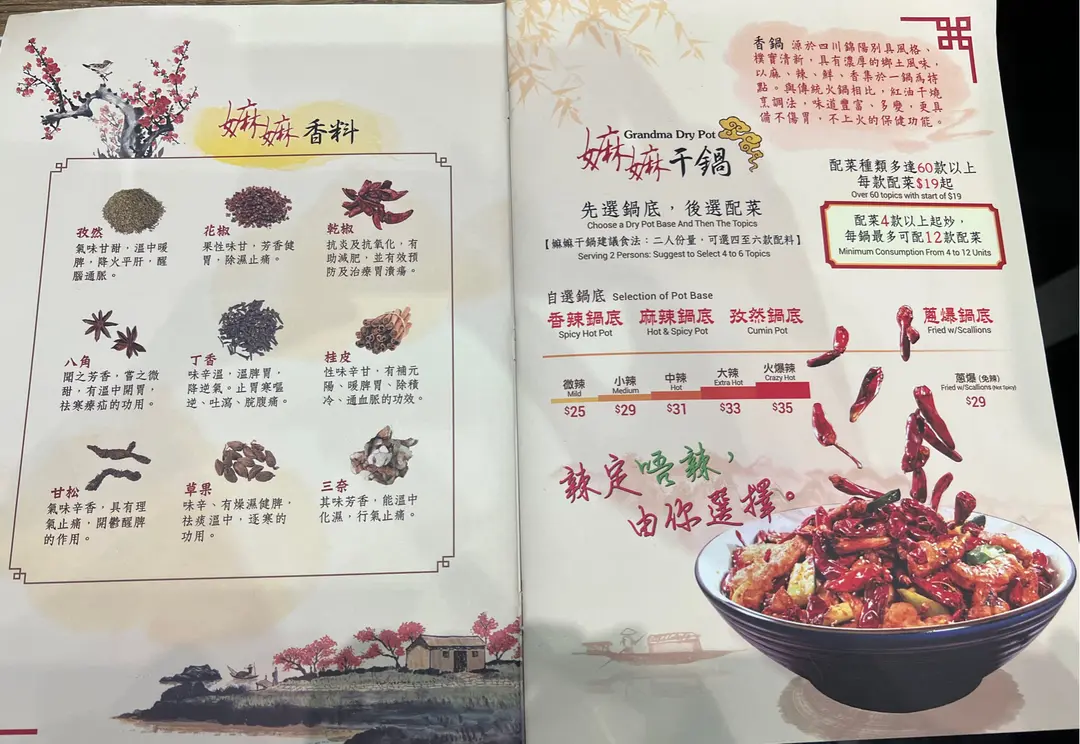 嫲嫲香料
孜然
氣味甘甜,溫中暖
脾,降火平肝,醒
腦通脈。
花椒
果性味甘,芳香健
胃,除濕止痛。
乾椒
抗炎及抗氧化,有
助減肥,並有效預
防及治療胃潰瘍。
八角
聞之芳香,嘗之微
甜,有溫中開胃,
祛寒療疝的功用。
丁香
味辛溫,溫脾胃,
降逆氣。止胃寒嘔
逆、吐瀉、脘腹痛。
桂皮
性味辛甘,有補元
陽、暖脾胃、除積
冷、通血脈的功效。
甘松
氣味辛香,具有理
氣止痛,開鬱醒脾
的作用。
草果
味辛、有燥濕健脾,
祛痰溫中,逐寒的
功用。
三奈
其味芳香,能溫中
化濕,行氣止痛。
香鍋 源於四川錦陽別具風格、
樸實清新,具有濃厚的鄉土風味,
以麻、辣、鮮、香集於一鍋為特
點。與傳統火鍋相比,紅油干燒
烹調法,味道豐富、多變,更具
備不傷胃,不上火的保健功能。
Grandma Dry Pot
嫲嫲干鍋
先選鍋底,後選配菜
Choose a Dry Pot Base And Then The Topics
【嫲嫲干鍋建議食法:二人份量,可選四至六款配料】
Serving 2 Persons: Suggest to Select 4 to 6 Topics
配菜種類多達60款以上
每款配菜$19起
Over 60 topics with start of $19
配菜4款以上起炒,
每鍋最多可配12款配菜
Minimum Consumption From 4 to 12 Units
自選鍋底 Selection of Pot Base
香辣鍋底 麻辣鍋底 孜然鍋底 蔥爆鍋底
Spicy Hot Pot Hot & Spicy Pot Cumin Pot Fried w/Scallions
微辣 小辣 中辣 大辣 火爆辣 蔥爆 (免辣)
Mild Medium Hot Extra Hot Crazy Hot Fried w/Scallions (Not Spicy)
$25 $29 $31 $33 $35 $29
辣定唔辣,
由你選擇。